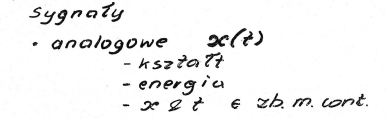 sygnały
• analogowe x(t)
- kształt
- energia
- x i t ∈ zb. m. cont.